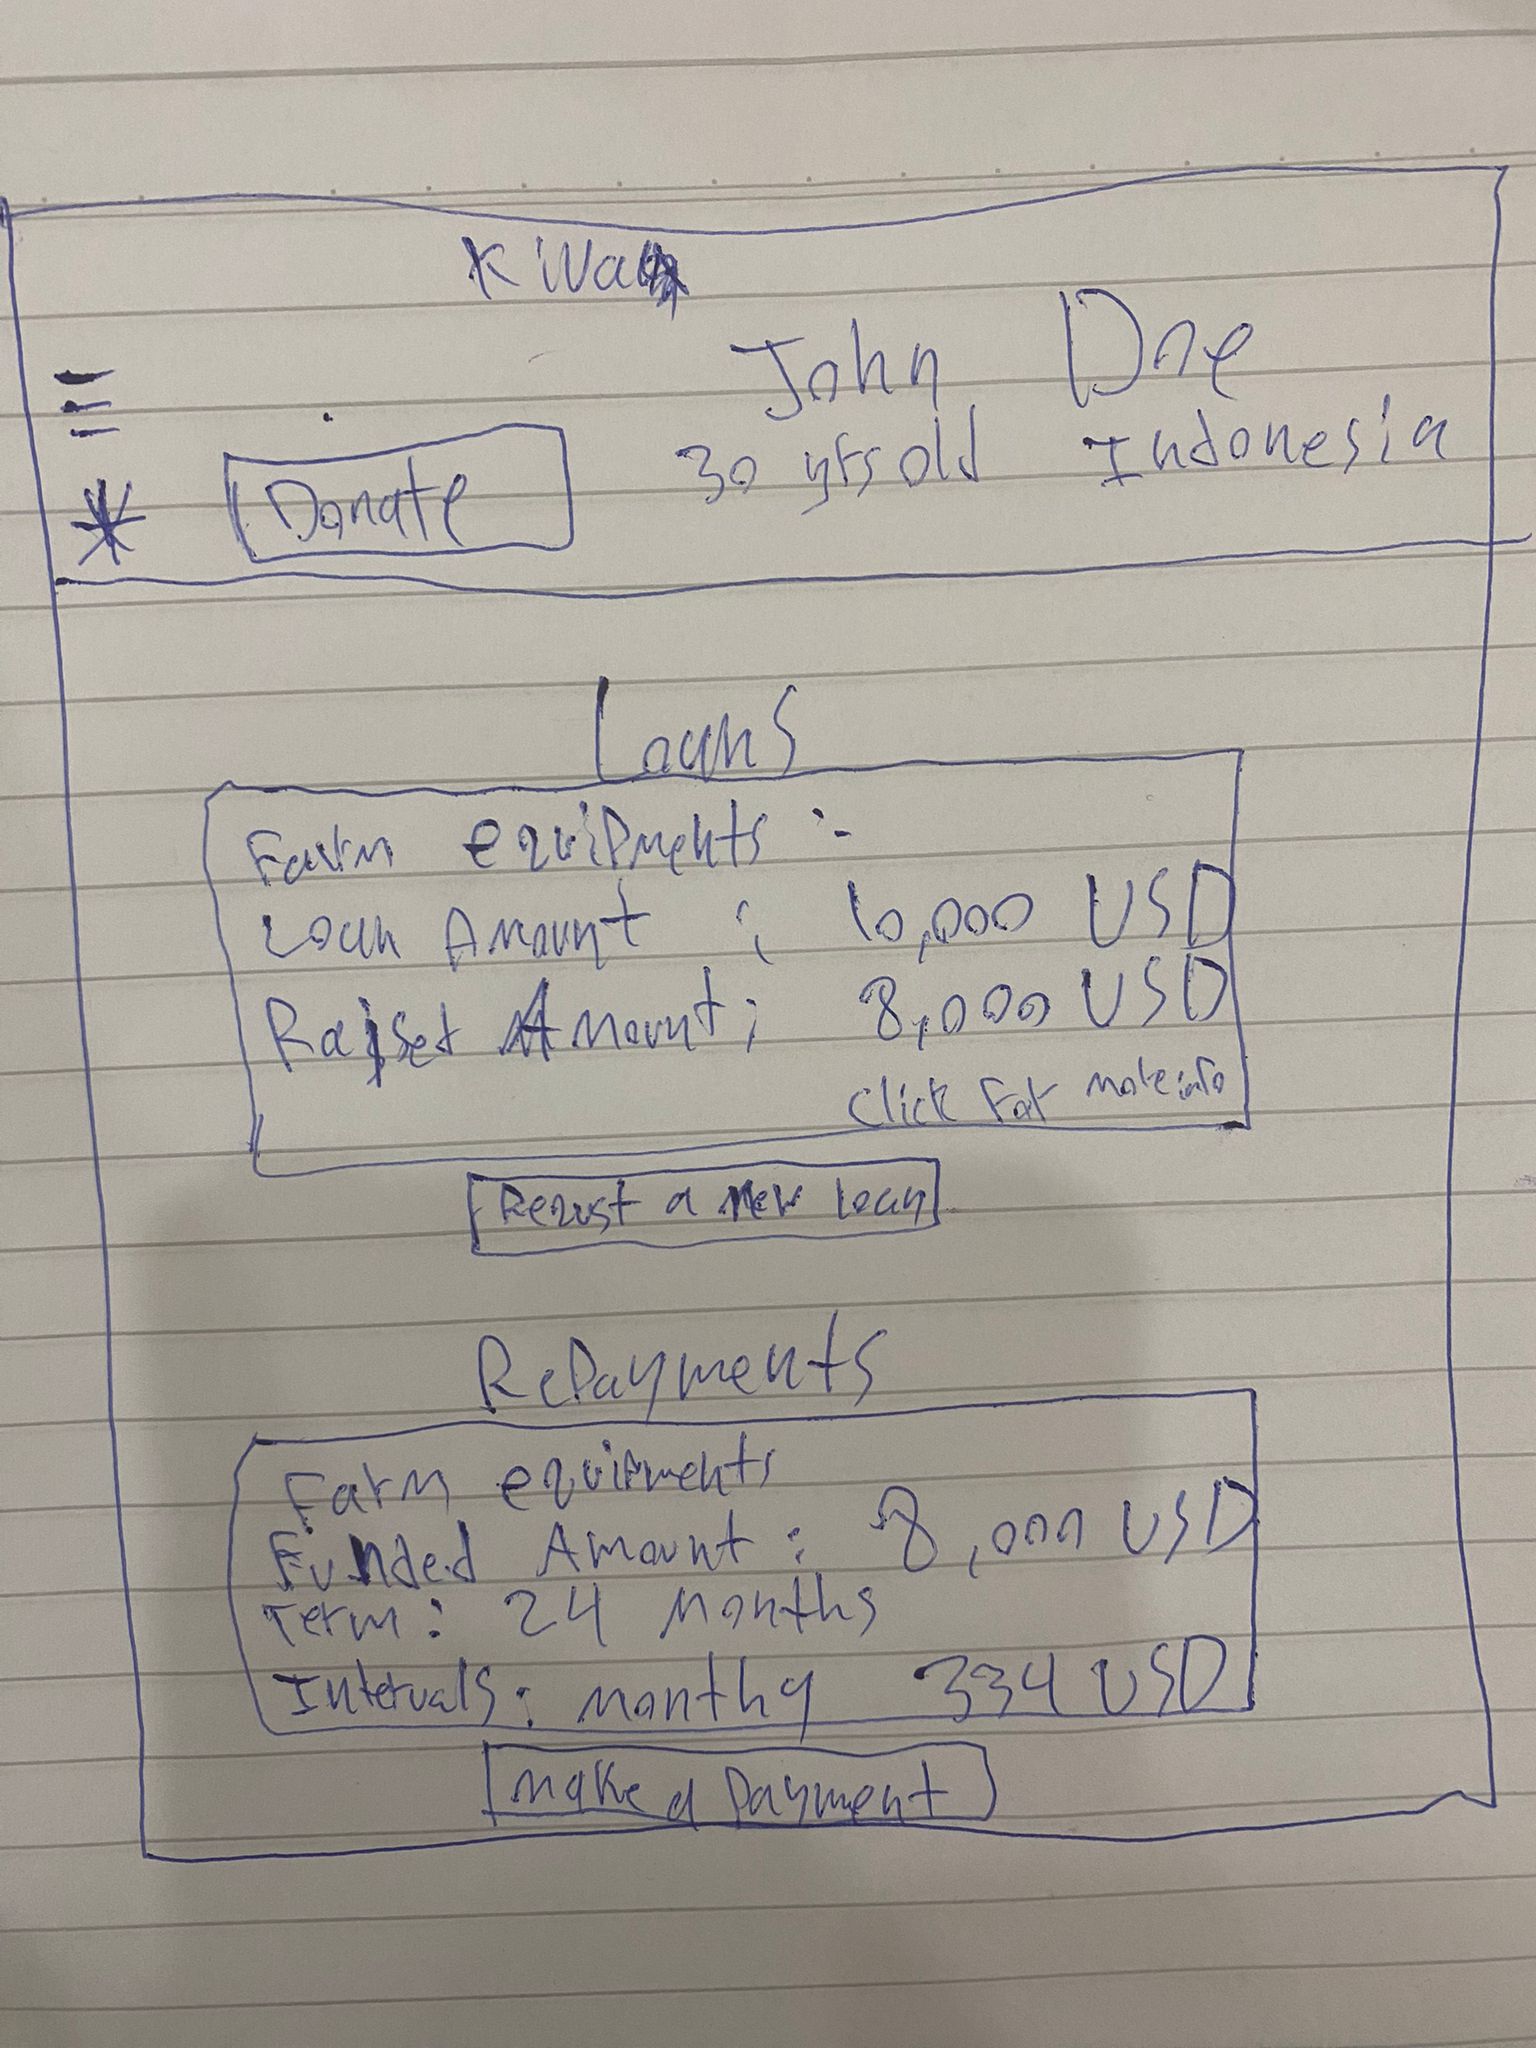 Kiva
John Doe
30 yrs old Indonesia
Donate
Loans
Farm equipments :-
Loan Amount : 10,000 USD
Raised Amount : 8,000 USD
Click For more info
Requst a new loan
Repayments
Farm equipments
Funded Amount : 8,000 USD
Term : 24 Months
Intervals : monthy 334 USD
Make a payment